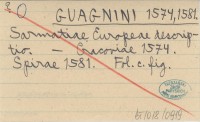 O GUAGNINI 1574, 1581.
Sarmatiae Europeae descrip-
tio. — Cracoviae 1574.
Spirae 1581. Fol. c. fig.